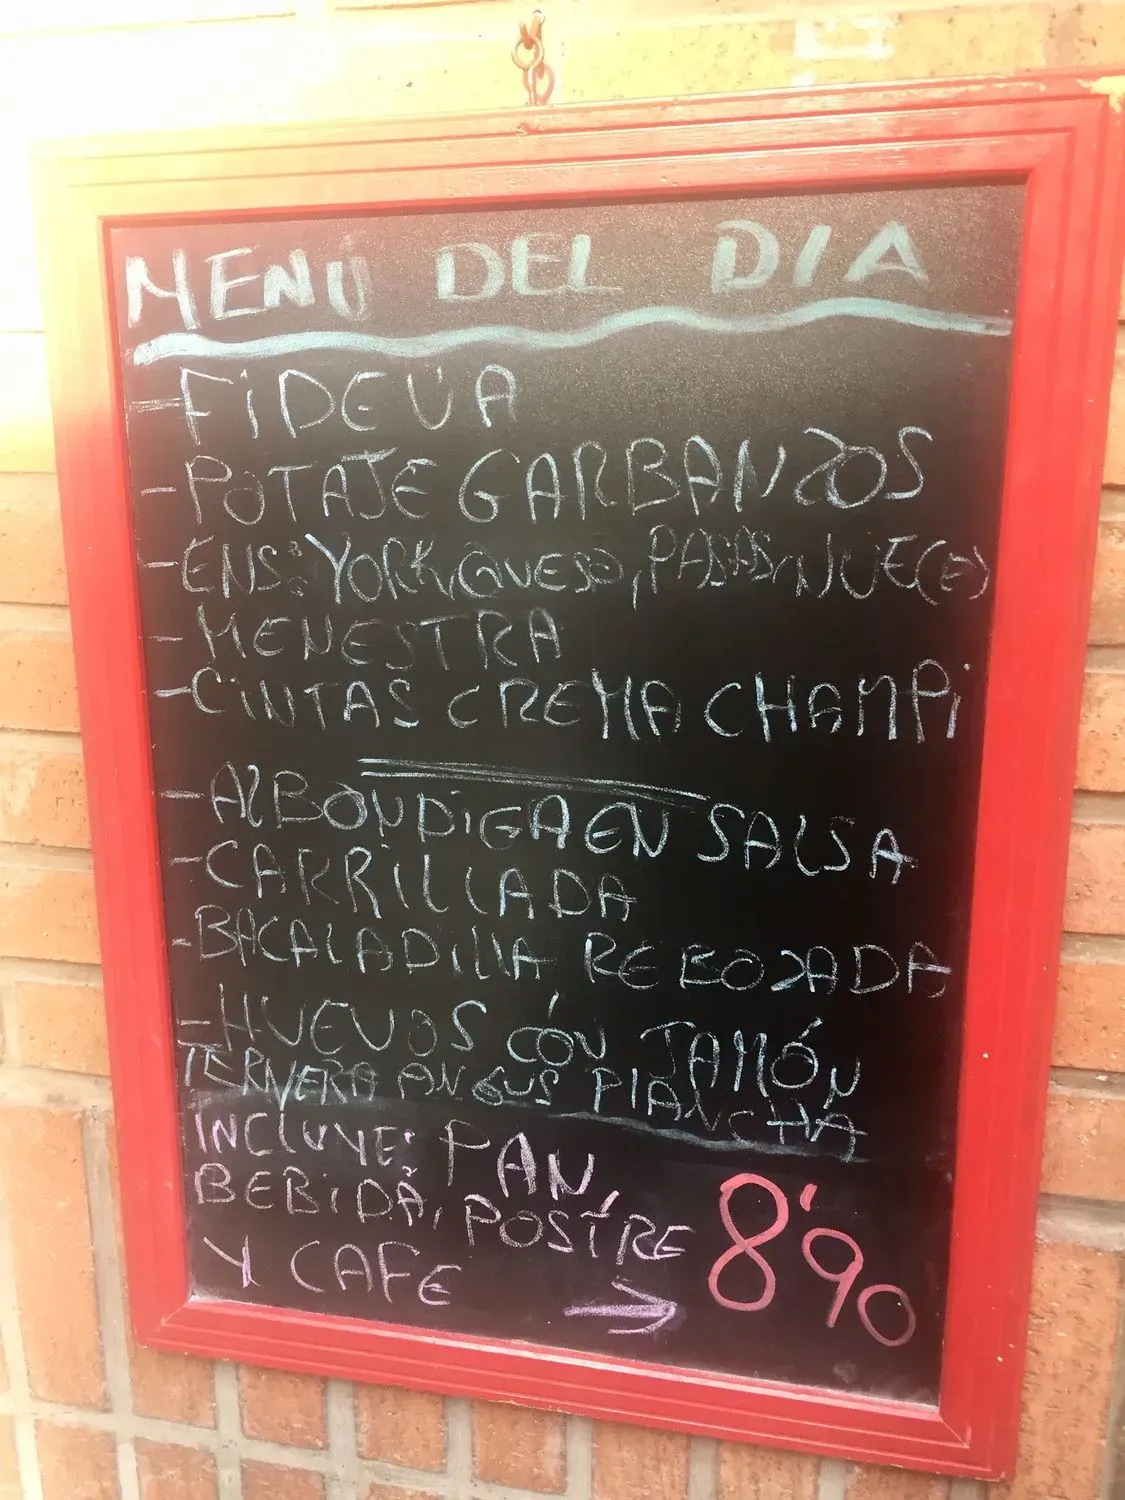 MENU DEL DIA
- FIDEUA
- POTAJE GARBANZOS
- ENS: YORK, QUESO, PASAS, NUECE)
- MENESTRA
- CINTAS CREMA CHAMPI
- ALBONDIGA EN SALSA
- CARRILLADA
- BACALADILLA REBOZADA
- HUEVOS CÓN JAMÓN
TERNERA ANGUS PLANCHA
INCLUYE: PAN,
BEBIDA, POSTRE
Y CAFE → 8'90